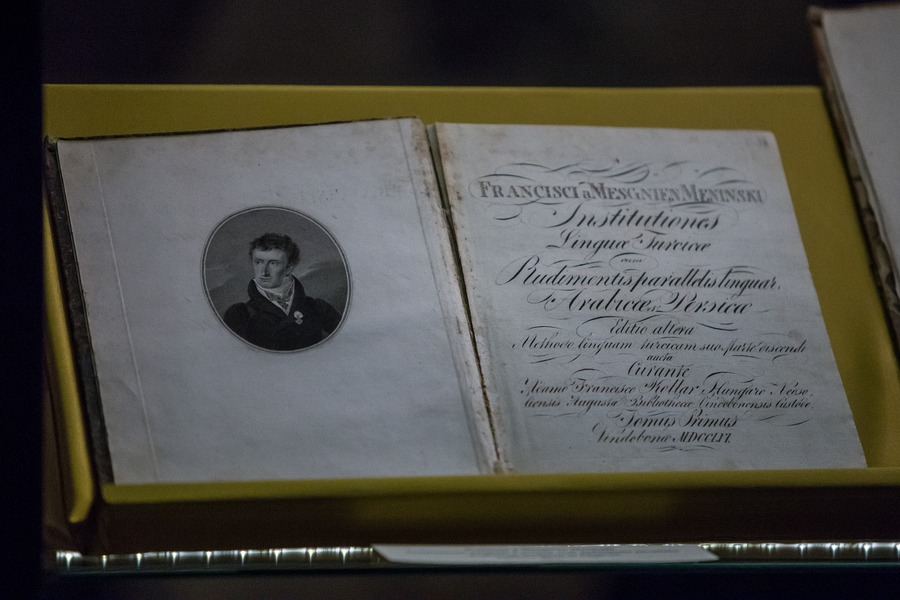 FRANCISCI à MESGNIEN MENINSKI
Institutiones
Linguæ Turcicæ
cum
Rudimentis parallelis linguar.
Arabicæ & Persicæ
Editio altera
Methodo linguam turcicam suo Marte discendi
aucta
Curante
Adamo Francisco Kollar Hungaro Neoso-
liensis Augustæ Bibliothecæ Vindobonensis Custode
Tomus Primus
Vindobonæ MDCCLVI.